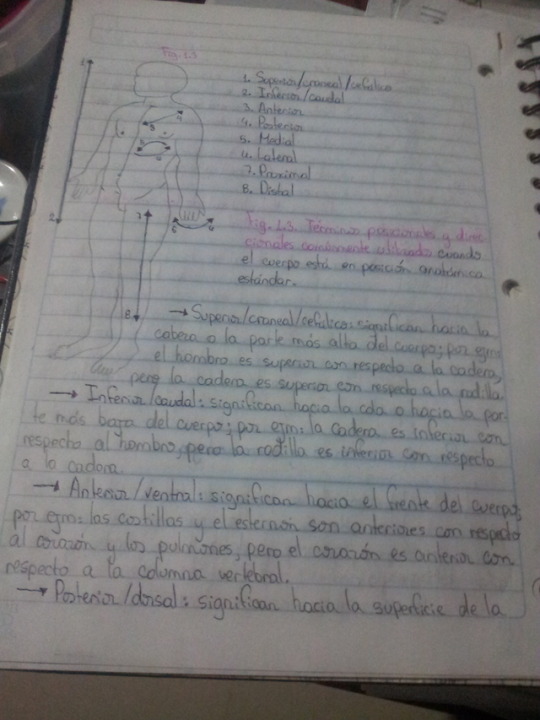 Fig. 1.3
1. Superior/craneal/cefalico
2. Inferior/caudal
3. Anterior
4. Posterior
5. Medial
6. Lateral
7. Proximal
8. Distal
1
2
3
4
5
6
7
8
6
Fig. 1.3. Términos posicionales y direc-
cionales comúnmente utilizados cuando
el cuerpo está en posición anatómica
estándar.
→ Superior/craneal/cefalico: significan hacia la
cabeza o la parte más alta del cuerpo; por ejm:
el hombro es superior con respecto a la cadera,
pero la cadera es superior con respecto a la rodilla.
→ Inferior/caudal: significan hacia la cola o hacia la par-
te más baja del cuerpo; por ejm: la cadera es inferior con
respecto al hombro, pero la rodilla es inferior con respecto
a la cadera.
→ Anterior/ventral: significan hacia el frente del cuerpo;
por ejm: las costillas y el esternón son anteriores con respecto
al corazón y los pulmones, pero el corazón es anterior con
respecto a la columna vertebral.
→ Posterior/dorsal: significan hacia la superficie de la